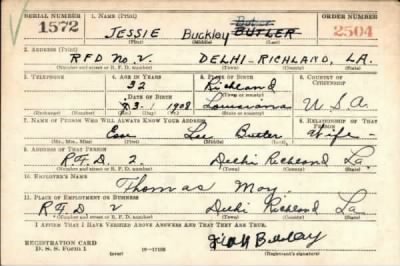 SERIAL NUMBER 1. NAME (Print) ORDER NUMBER
1572 JESSIE Buckley BUTLER 2504
(First) (Middle) (Last)
2. ADDRESS (Print)
R.F.D. No. V. DELHI-RICHLAND, LA.
(Number and street or R. F. D. number) (Town) (County) (State)
3. TELEPHONE 4. AGE IN YEARS 5. PLACE OF BIRTH 6. COUNTRY OF CITIZENSHIP
32 Richland
DATE OF BIRTH (Town or county)
3-1 1908 Louisiana U.S.A.
(Exchange) (Number) (Mo.) (Day) (Yr.) (State or country)
7. NAME OF PERSON WHO WILL ALWAYS KNOW YOUR ADDRESS 8. RELATIONSHIP OF THAT PERSON
Lee Butler Wife -
(Mr., Mrs., Miss) (First) (Middle) (Last)
9. ADDRESS OF THAT PERSON
R.F.D. 2. Delhi Richland La.
(Number and street or R. F. D. number) (Town) (County) (State)
10. EMPLOYER'S NAME
Thomas May.
11. PLACE OF EMPLOYMENT OR BUSINESS
R F D 2 Delhi Richland La.
(Number and street or R. F. D. number) (Town) (County) (State)
I AFFIRM THAT I HAVE VERIFIED ABOVE ANSWERS AND THAT THEY ARE TRUE.
REGISTRATION CARD
D. S. S. Form 1
(Registrant's signature)